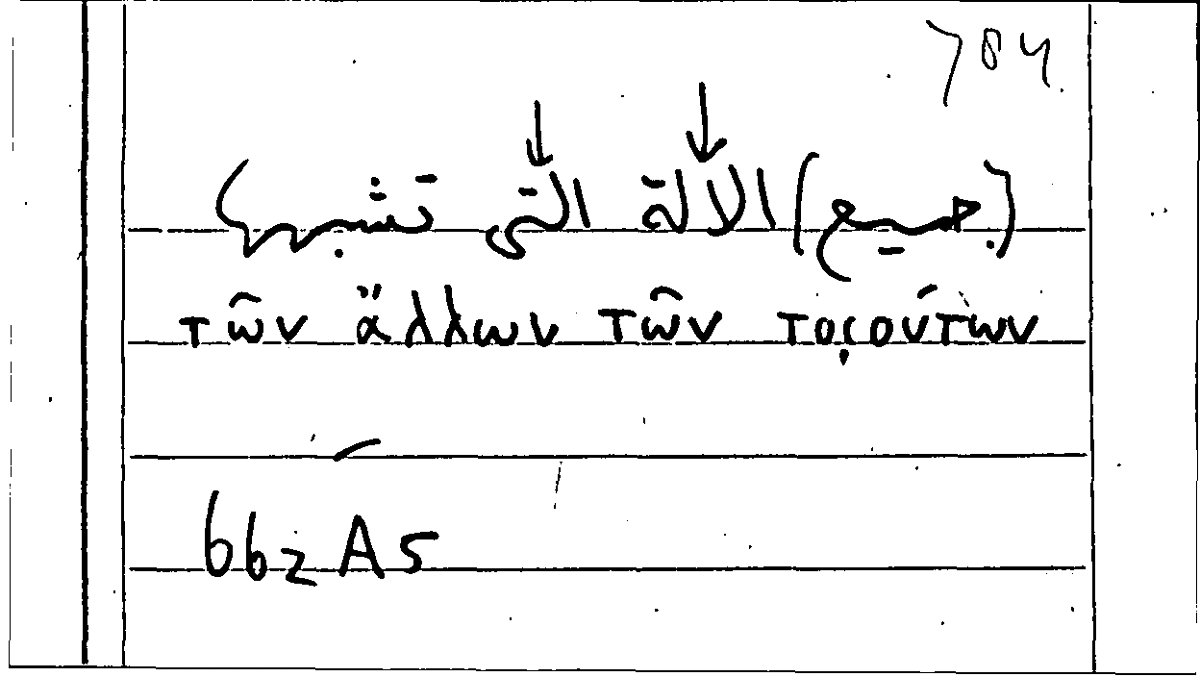 704
(جميع) الالة التى تشبهها
τῶν ἄλλων τῶν τοιούτων
662 A5